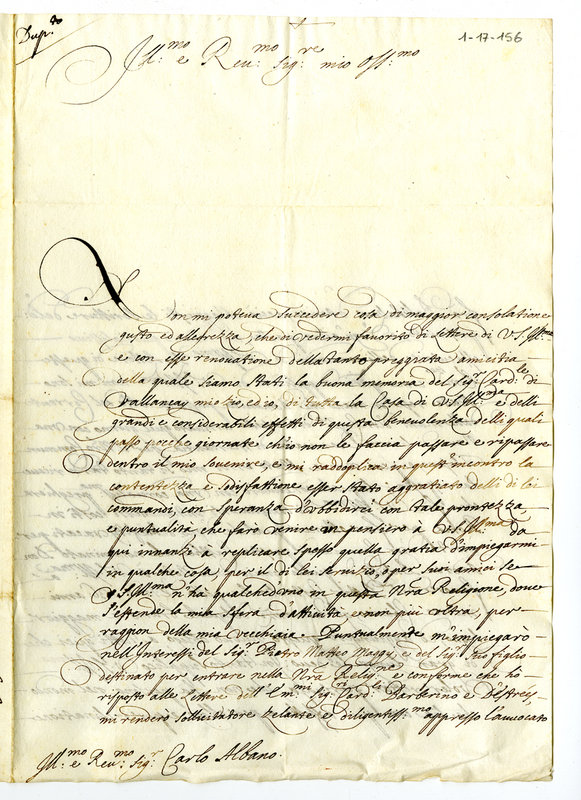 Dup.to
1-17-156
Ill:mo e Reu:mo Sig:re mio Oss:mo
Non mi poteua succedere cosa di maggior consolatione
gusto ed allegrezza, che di vedermi fauorito di lettere di V.S. Ill:ma
e con esse renouatione della tanto preggiata amicitia
della quale siamo stati la buona memoria del Sig:r Card:le di
Vallancay mio zio, ed io, di tutta la Casa di V.S. Ill:ma e delli
grandi e considerabili effetti di questa beneuolenza delli quali
passo pocche giornate ch'io non le faccia passare e ripassare
dentro il mio souenire, e mi raddoplica in quest'incontro la
contentezza e sodisfattione esser stato aggratiato delli di lei
commandi, con speranza d'vbbidirci con tale prontezza,
e puntualità, che farò venire in pensiero à V.S. Ill:ma da
qui innanzi à replicare spesso quella gratia d'impiegarmi
in qualche cosa, per il di lei seruizio, ò per suoi amici se
V.S. Ill:ma n'ha qualcheduno in questa Nra Religione, doue
s'estende la mia sfera d'attiuità e non più vltra, per
raggion della mia vecchiaia. Puntualmente m'impiegarò
nell'Interessi del Sig:r Pietro Matteo Maggi, e del Sig:r suo figlio
destinato per entrare nella Nra Relig:ne e conforme che hò
risposto alle lettere dell'Em:mi Sig:ri Card:li Barberino e D'Estreés,
mi renderò sollicitatore zelante e diligentiss:mo appresso l'auuocato
Ill:mo e Reu:mo Sig:r Carlo Albano.